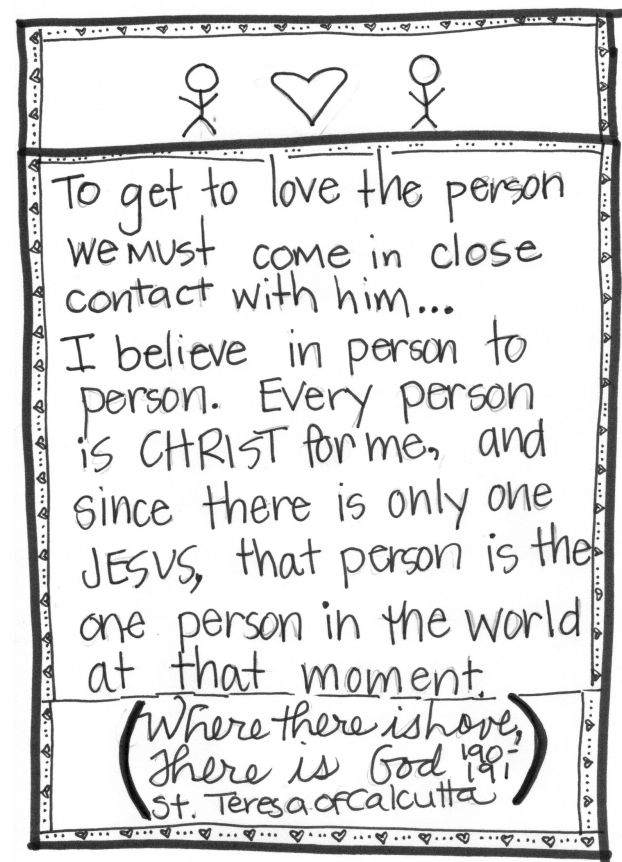 To get to love the person
we must come in close
contact with him...
I believe in person to
person. Every person
is CHRIST for me, and
since there is only one
JESUS, that person is the
one person in the world
at that moment.
(Where there is Love,
There is God 190-
191
St. Teresa of Calcutta)